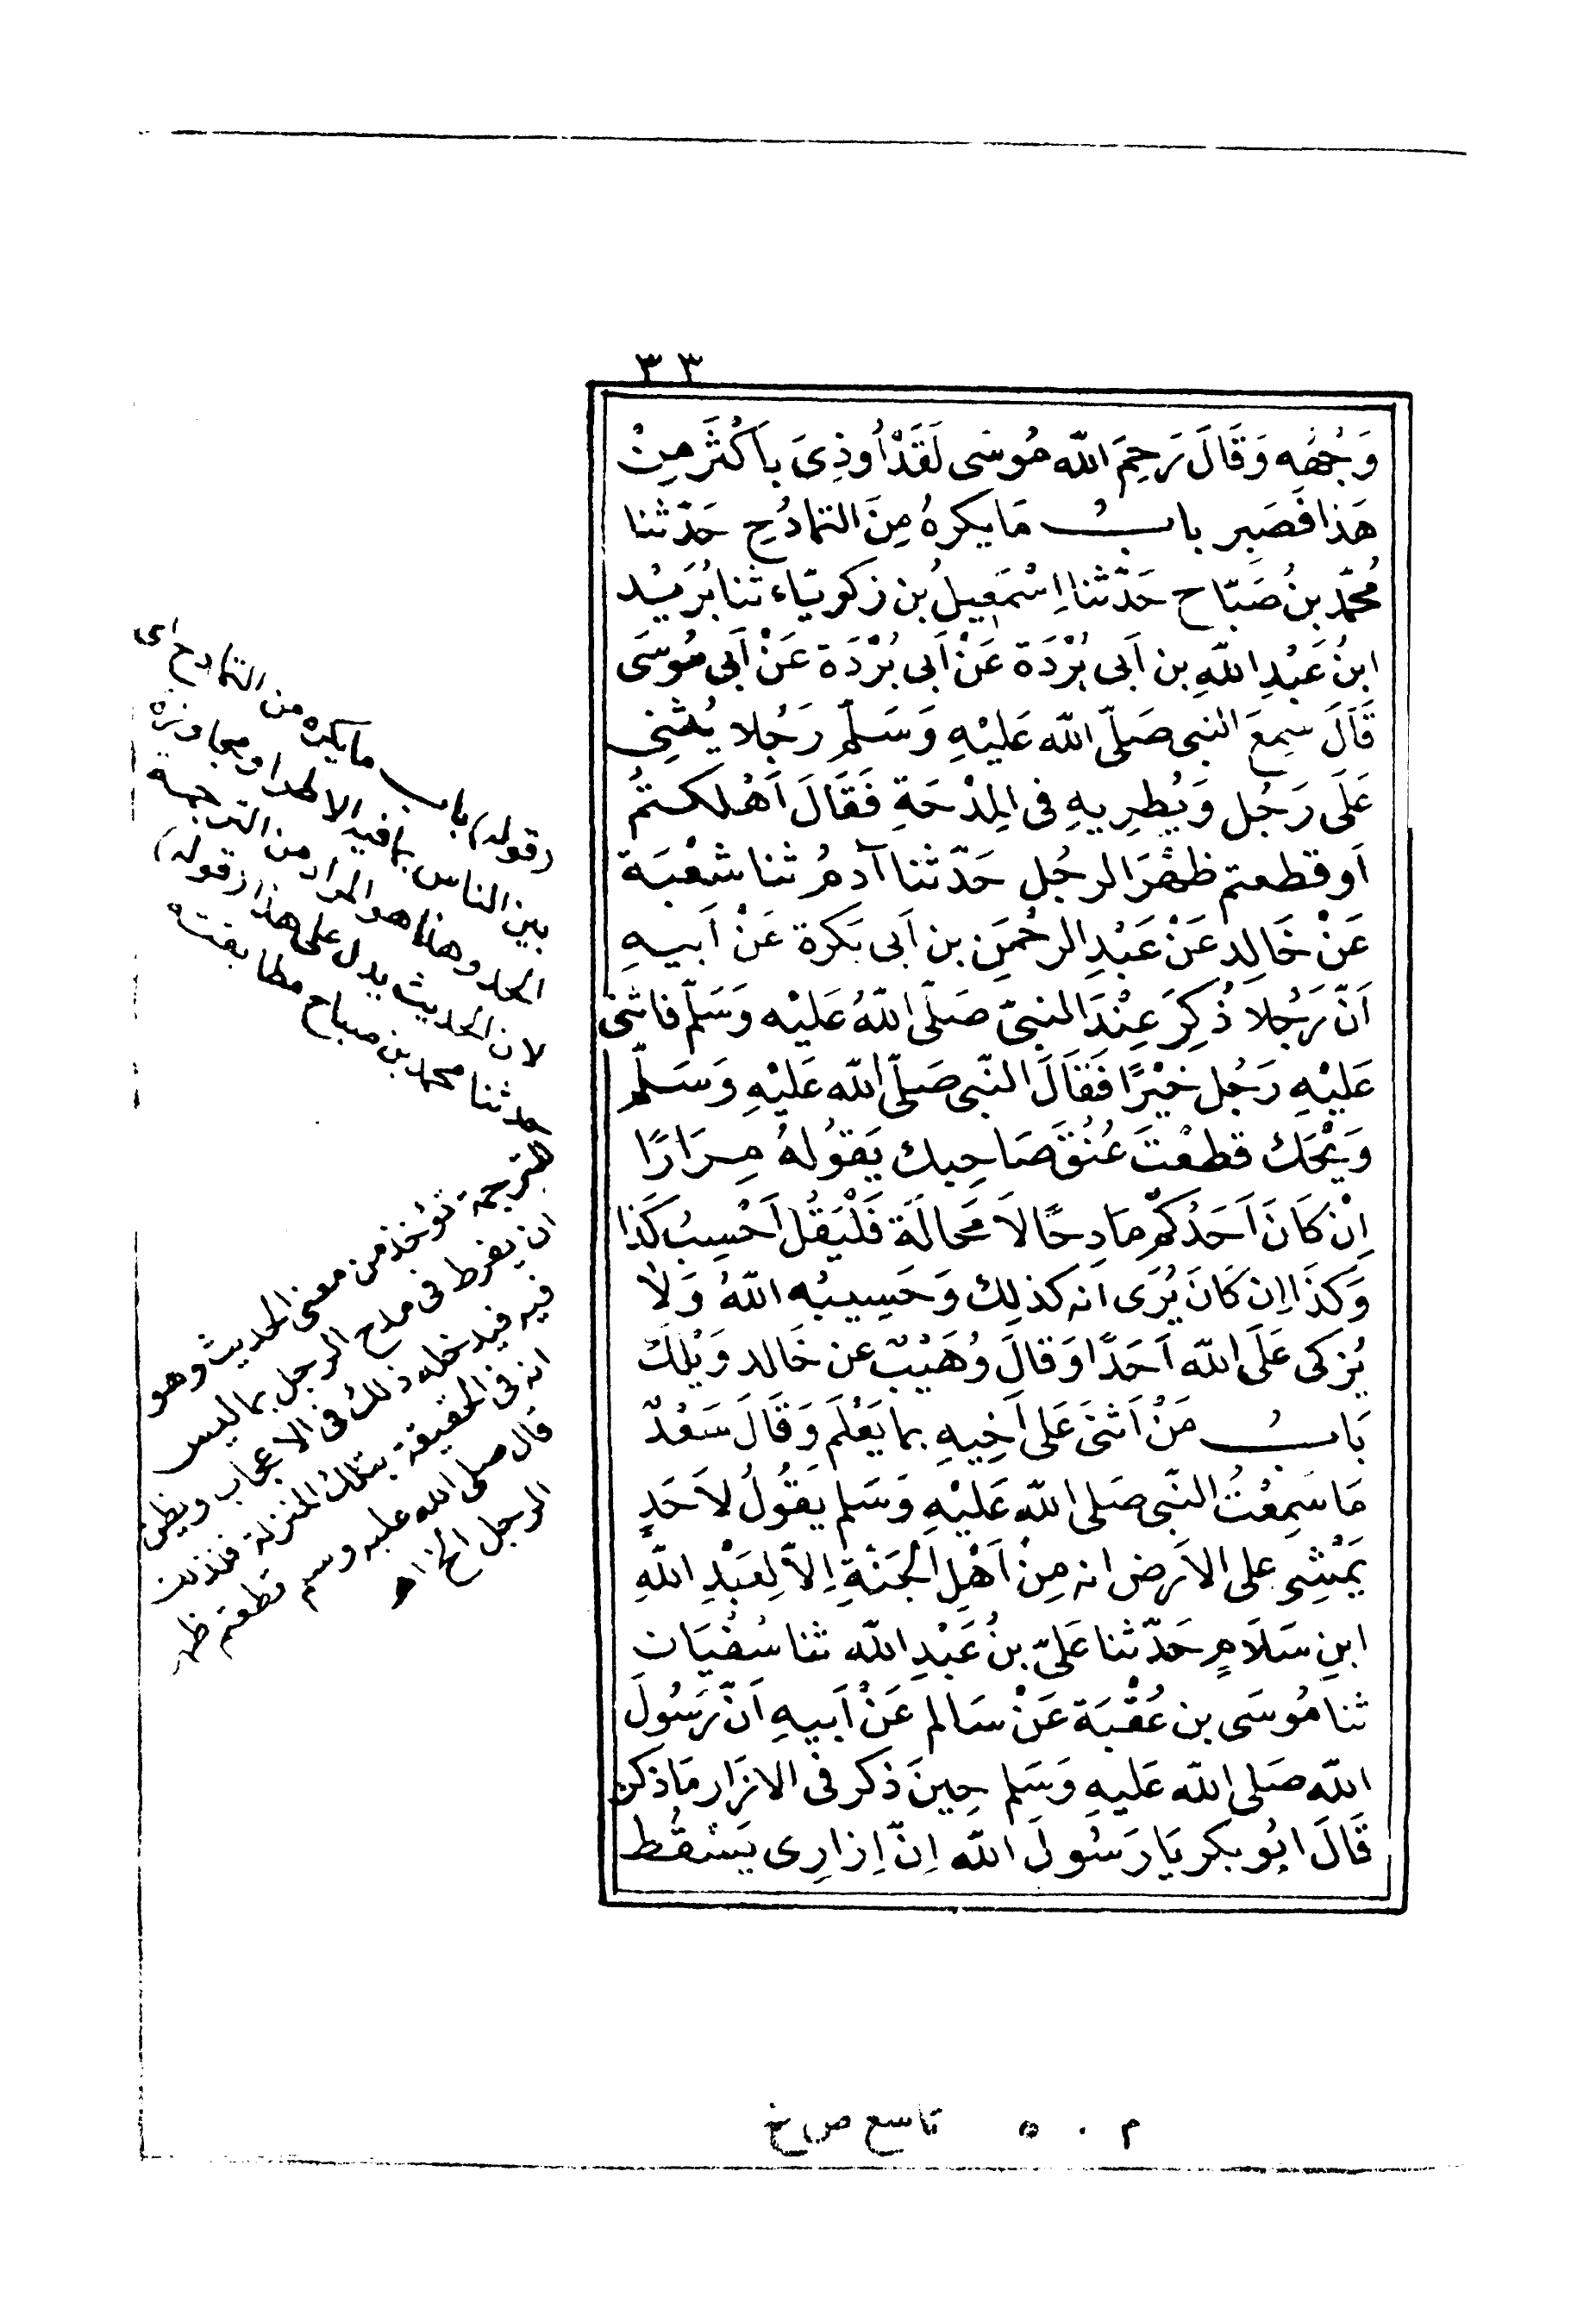 ٣٣
وَجْهُه وَقَالَ رَحِمَ الله مُوسَى لَقَدْ اُوذِىَ بِاَكْثَرَ مِنْ
هَذَا فَصَبِر بابُ مَا يكرهُ مِنَ التمادُحِ حَدّثنا
مُحمّد بنُ صَبّاح حَدّثنا اِسْمَعِيلُ بن زكريّاء ثنا بُرَيْد
ابنُ عَبْدِ اللهِ بن اَبى بُرْدَة عَنْ اَبى بُرْدَة عَنْ اَبى مُوسَى
قَالَ سمِعَ النبى صَلّى الله عَليْهِ وَسَلّم رَجُلا يُثنِى
عَلَى رَجُل وَيُطرِيهِ فى المِدْحَةِ فَقَالَ اَهْلكتمُ
اَو قطعتم ظَهْرَ الرجُل حَدّثنا آدمُ ثنا شعْبَة
عَنْ خَالِد عَنْ عَبْدِ الرحْمَن بن اَبى بَكرة عَنْ اَبيهِ
اَنّ رَجُلا ذُكِرَ عِنْدَ النبىّ صَلّى اللهُ عَليْه وَسَلّم فاثنى
عَليْهِ رَجُل خيْرًا فَقَالَ النّبى صَلّى الله عَليْهِ وَسَلّم
وَيْحَك قطعْتَ عُنُقَ صَاحِبك يَقوُلهُ مِرَارًا
اِنْ كَانَ اَحَدُكمْ مَادِحًا لاَ مَحَالَة فَلْيَقُل اَحْسِبُ كَذا
وَكذَا اِن كَانَ يُرَى انه كذلِك وَحَسِيبُه اللهُ وَلا
يُزكى عَلَى الله اَحَدًا وَقالَ وُهَيْبٌ عن خَالد وَيْلك
بَابُ مَنْ اَثنَى عَلى اَخِيهِ بما يَعْلَم وَقَالَ سَعْدٌ
مَا سَمِعْتُ النّبى صَلى الله عَليْهِ وَسَلم يقُولُ لاَحَدٍ
يَمْشِى على الاَرض انه مِنْ اَهْلِ الْجَنةِ اِلاّ لِعَبْدِ اللهِ
ابنِ سَلاَمٍ حَدّثنا عَلىّ بنُ عَبْدِ الله ثنا سُفْيَان
ثنا مُوسَى بن عُقْبَة عَنْ سَالم عَنْ اَبيهِ اَنّ رَسُولَ
الله صَلى الله عَليهِ وَسَلم حِينَ ذكر فى الازَار مَا ذكر
قَالَ ابُو بكر يَا رَسُولَ الله اِنّ اِزارِى يَسْقُط
(قوله) باب ما يكره من التمادح اى
بين الناس بما فيه الاطراء ومجاوزة
الحد وهذا هو المراد من الترجمة
لان الحديث يدل على هذا (قوله)
حدثنا محمد بن صباح مطابقته
للترجمة تؤخذ من معنى الحديث وهو
ان يفرط فى مدح الرجل بما ليس
فيه فيدخله ذلك فى الاعجاب ويظن
انه فى الحقيقة بتلك المنزلة فلذلك
قال صلى الله عليه وسم قطعتم ظهر
الرجل الخ اهـ
م . ٥ تاسع ص خ